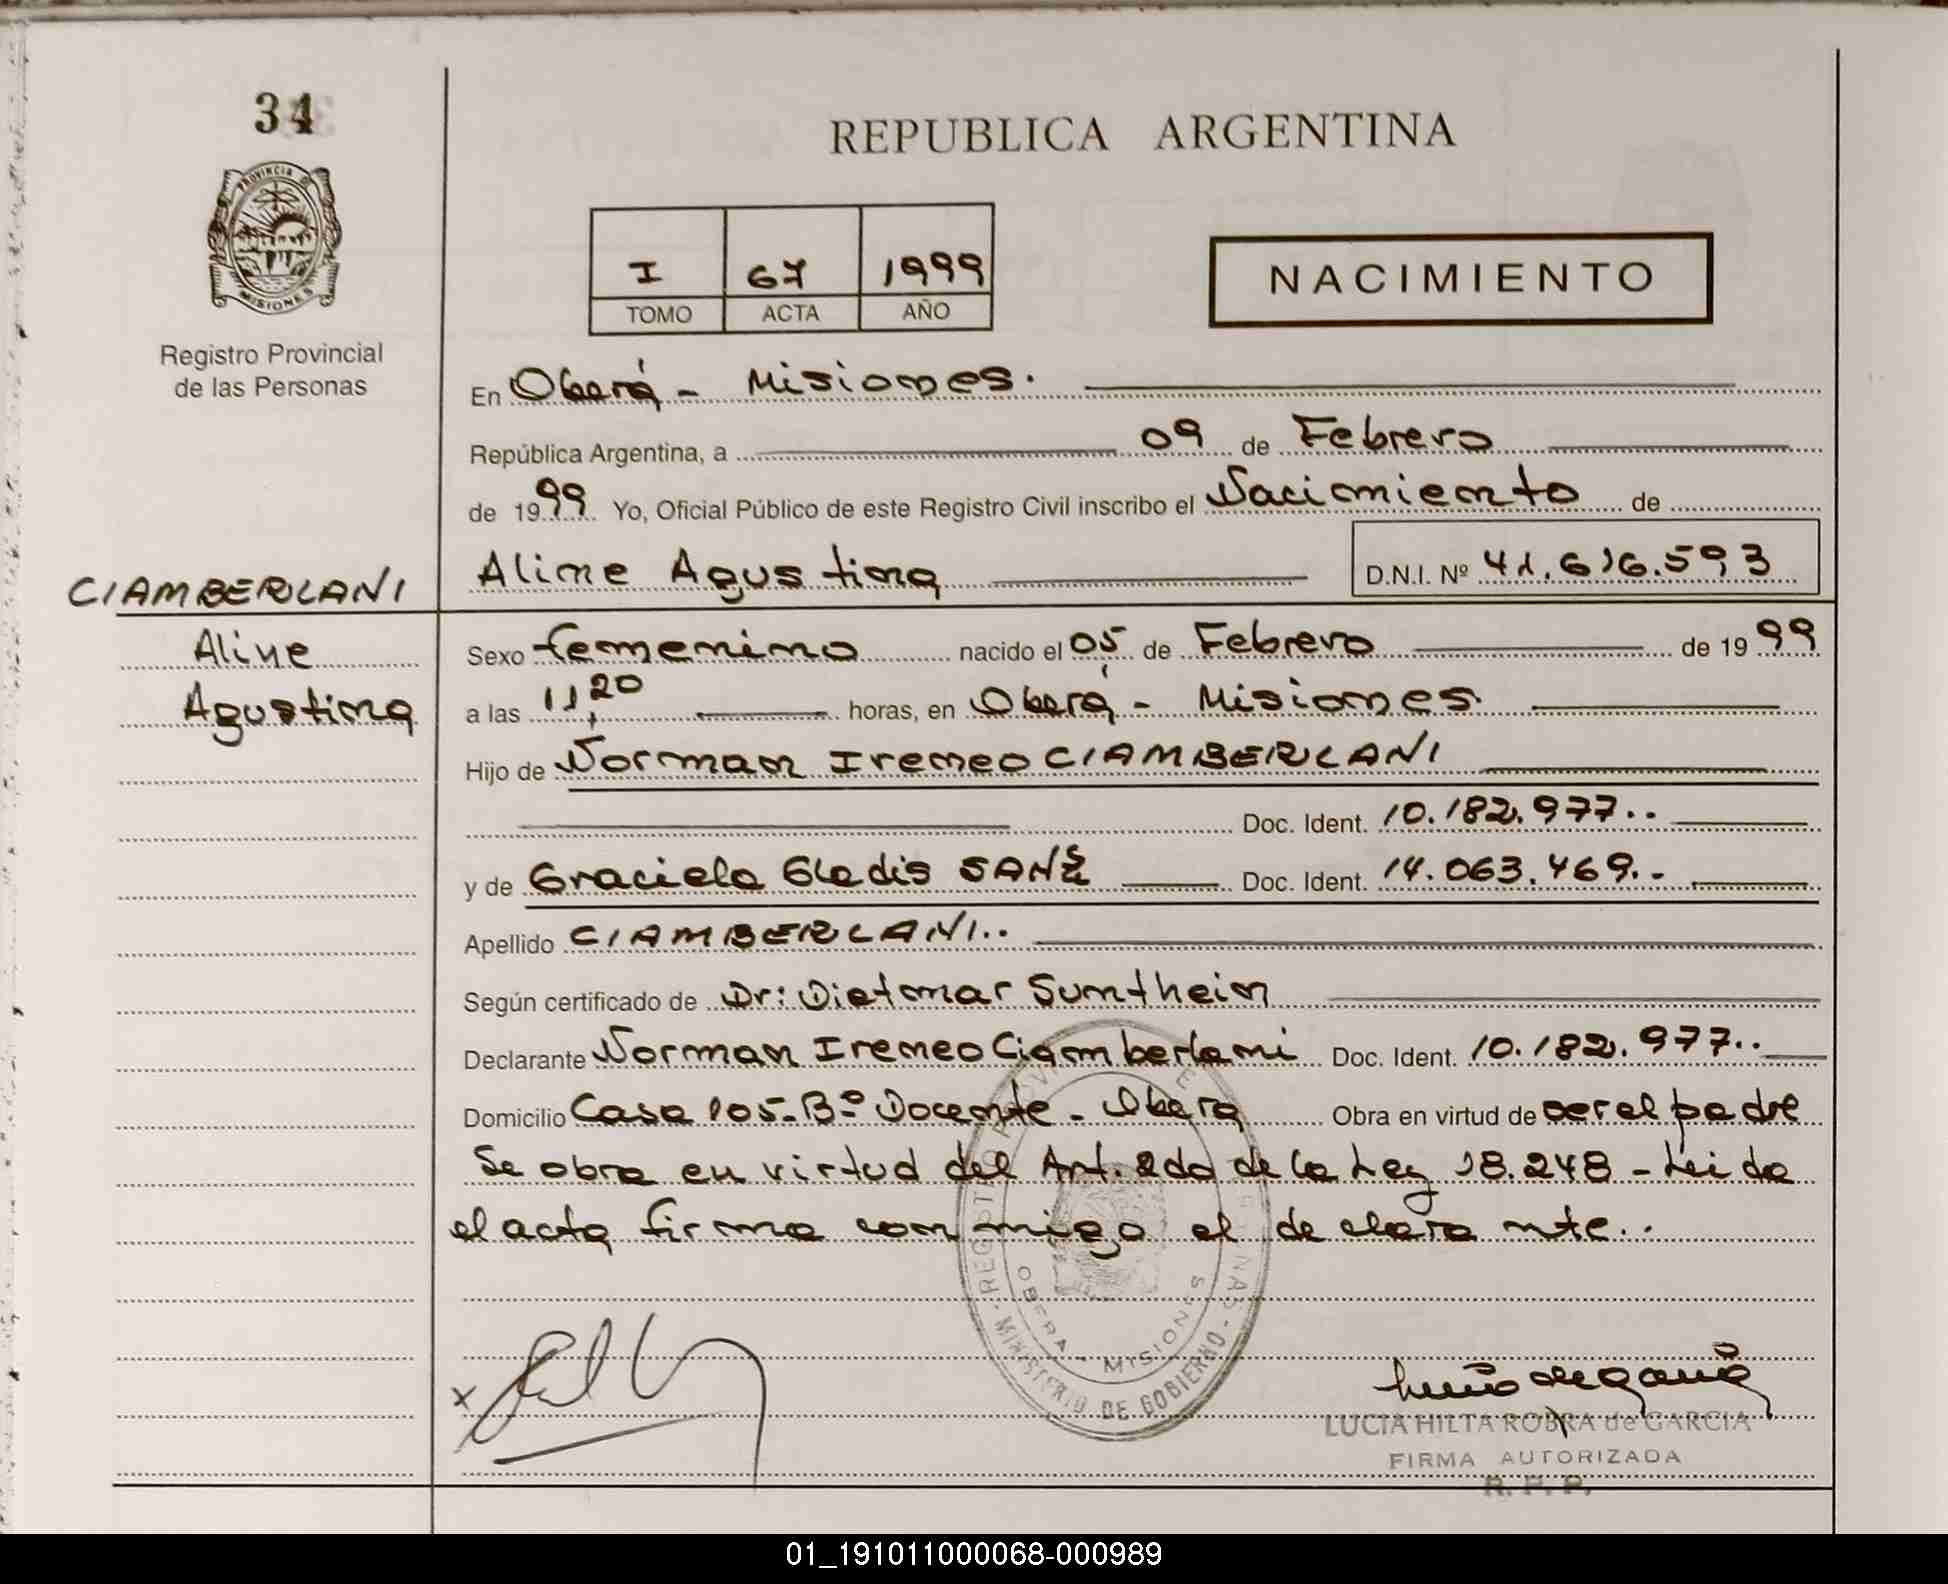 34
PROVINCIA DE
MISIONES
Registro Provincial
de las Personas
REPUBLICA ARGENTINA
I 67 1999
TOMO ACTA AÑO
NACIMIENTO
En Oberá - Misiones.
República Argentina, a 09 de Febrero
de 1999 Yo, Oficial Público de este Registro Civil inscribo el Nacimiento de
Aline Agustina D.N.I. Nº 41.616.593
CIAMBERLANI
Aline
Agustina
Sexo femenino nacido el 05 de Febrero de 1999
a las 11,20 horas, en Oberá - Misiones.
Hijo de Norman Ireneo CIAMBERLANI
Doc. Ident. 10.182.977..
y de Graciela Gladis Doc. Ident. 14.063.469.-
Apellido CIAMBERLANI..
Según certificado de Dr: Dietmar Suntheim
Declarante Norman Ireneo Ciamberlani Doc. Ident. 10.182.977..
Domicilio Casa 105-Bº Docente - Obera Obra en virtud de ser el padre
Se obra en virtud del Art. 2do de la Ley 18.248 - Leida
el acta firma con migo el declarante..
OBERA - MISIONES
MINISTERIO DE GOBIERNO
LUCIA HILTA ROBRA de GARCIA
FIRMA AUTORIZADA
R. P. P.
01_191011000068-000989